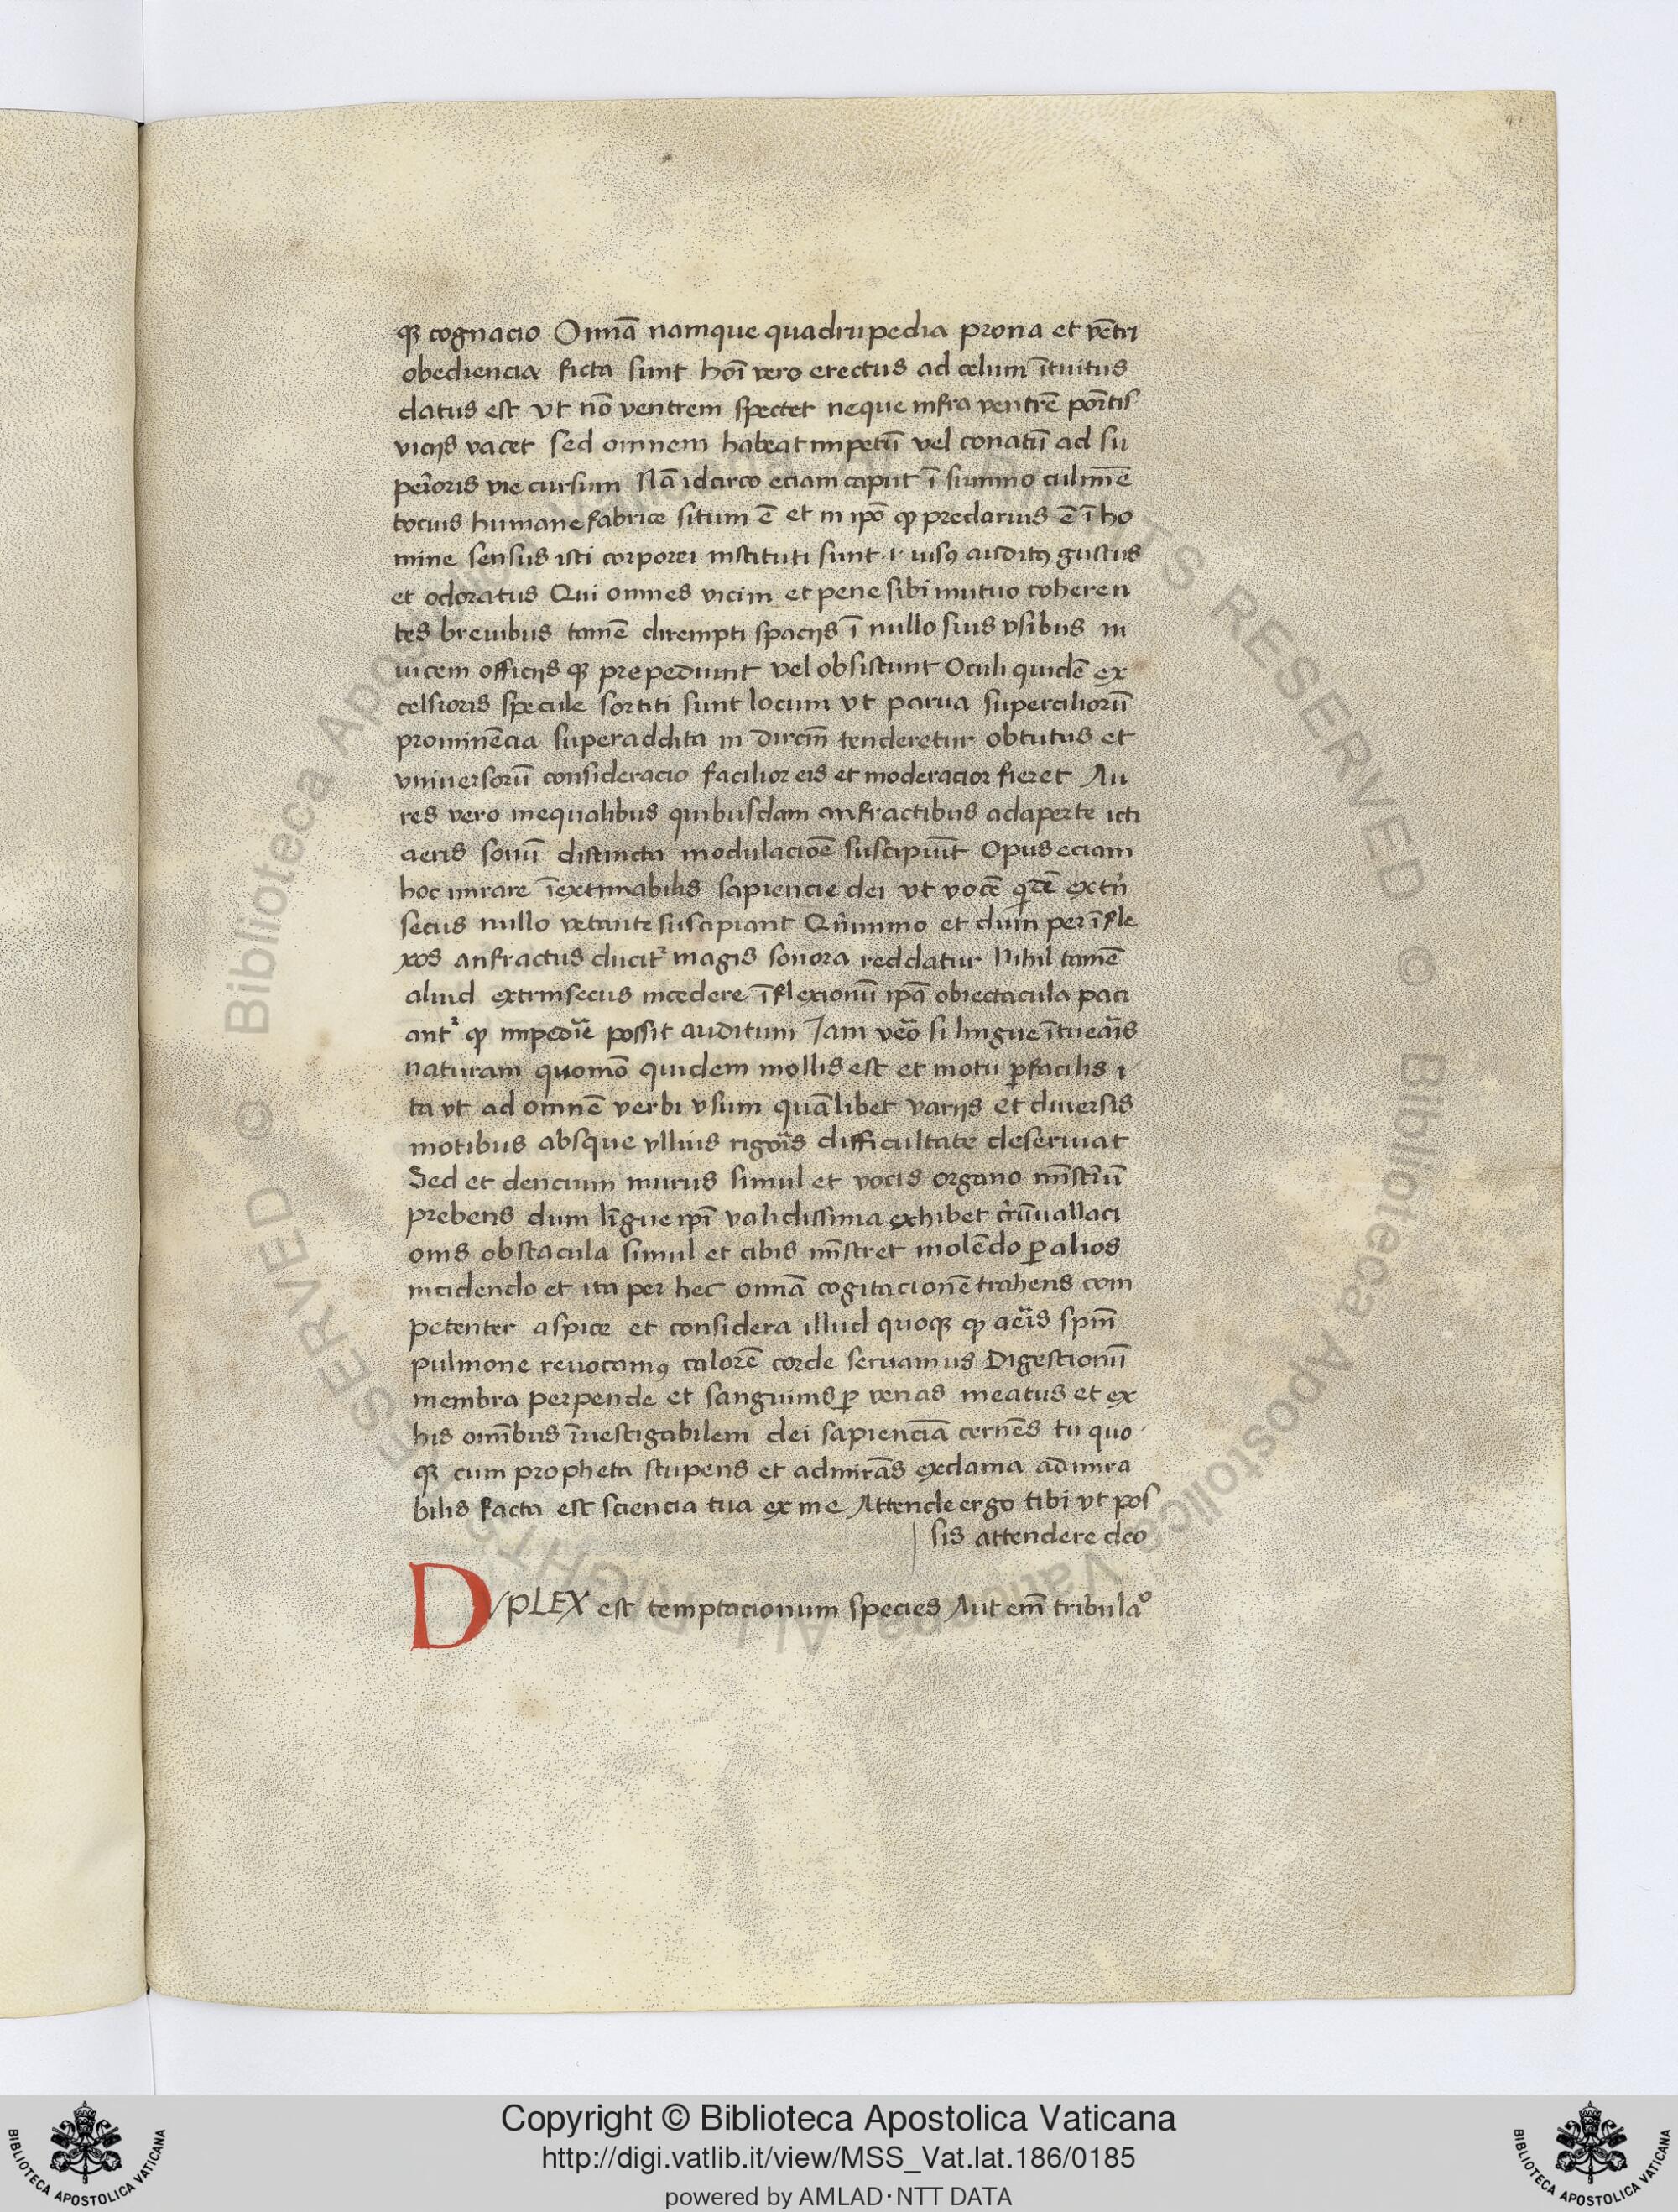 qꝫ cognacio Omnā namque quadrupedia prona et vētri
obediencia ficta sunt hoī vero erectus ad celum ītuitus
datus est vt nō ventrem spectet neque infra ventrē
vicijs vacet sed omnem habeat impetū vel conatū ad su
perioris vie cursum Nā idcirco eciam caput ī summo culmīe
tocius humane fabrice situm ē et in ipō qꝫ preclarius ē ī ho
mine sensus isti corporei instituti sunt ·i· uisꝰ auditꝰ gustus
et odoratus Qui omnes vicim et pene sibi mutuo coheren
tes breuibus tamē dirempti spacijs ī nullo suis vsibus in
uicem officijs qꝫ prepediunt vel obsistunt Oculi quidē ex
celsioris specule sortiti sunt locum vt parua superciliorū
prominēcia superaddita in dircm̄ tenderetur obtutus et
vniuersorū consideracio facilior eis et moderacior fieret Au
res vero inequalibus quibusdam anfractibus adaperte icti
aeris sonū distincta modulacioē suscipiūt Opus eciam
hoc mirare īextimabilis sapiencie dei vt vocē qͥdē extn̄
secus nullo vetante suscipiant Qn̄immo et dum per īfle
xos anfractus ducit᷑ magis sonora reddatur Nihil tamē
aliud extrinsecus incedere īflexionū ipā obiectacula paci
ant᷑ qꝫ impedīe possit auditum Iam veᷓo si lingue ītueaᷓis
naturam quomō quidem mollis est et motu ꝑfacilis i
ta vt ad omnē verbi vsum quālibet varijs et diuersis
motibus absque vllius rigoīs difficultate deseruiat
Sed et dencium murus simul et vocis organo mīstīū
prebens dum līgue ipī validissima exhibet cīrūuallaci
onis obstacula simul et cibis mīstret molēdo ꝑ alios
incidendo et ita per hec omnā cogitacionē trahens com
petenter aspice et considera illud quoqꝫ qꝫ aeᷓis spm̄
pulmone reuocamꝰ calorē corde seruamus Digestionū
membra perpende et sanguinis ꝑ venas meatus et ex
his omībus īuestigabilem dei sapienciā cernēs tu quo
qꝫ cum propheta stupens et admirās exclama admira
bilis facta est sciencia tua ex me Attende ergo tibi vt pos
sis attendere deo
DVPLEX est temptacionum species Aut em̄ tribulaᵒ
© Biblioteca Apostolica Vaticana ALL RIGHTS RESERVED © Biblioteca Apostolica Vaticana ALL RIGHTS RESERVED
BIBLIOTECA APOSTOLICA VATICANA
Copyright © Biblioteca Apostolica Vaticana
http://digi.vatlib.it/view/MSS_Vat.lat.186/0185
powered by AMLAD·NTT DATA
BIBLIOTECA APOSTOLICA VATICANA